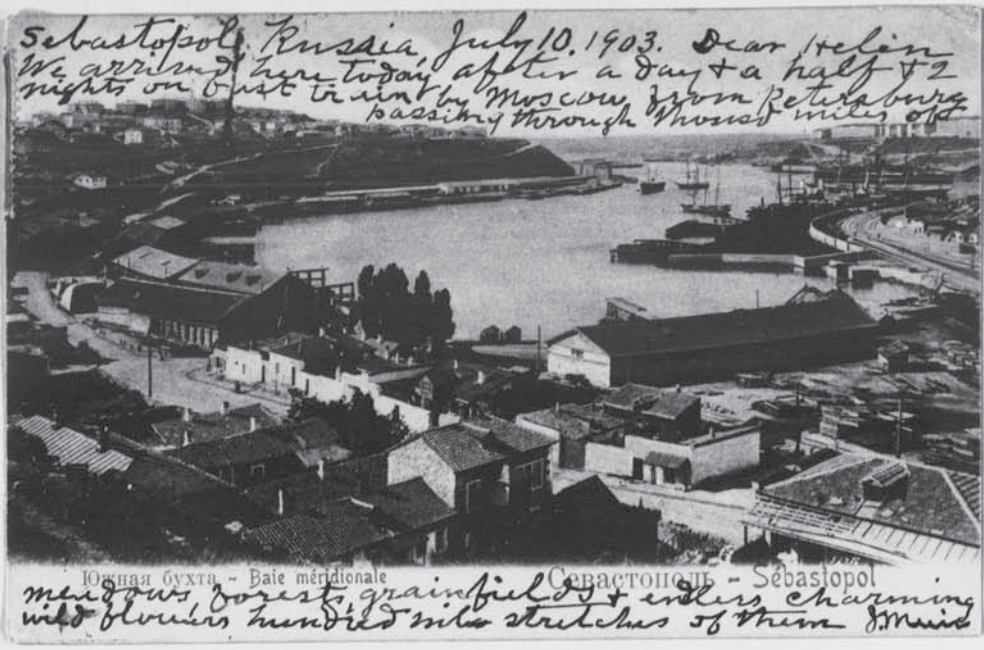 Sebastopol, Russia, July 10, 1903. Dear Helen
We arrived here today after a day & a half & 2
nights on fast train by Moscow from Petersburg
passing through thousd miles of
Южная бухта - Baie méridionale Севастополь - Sébastopol
meadows forests grainfields & endless charming
wild flowers hundred mile stretches of them J. Muir